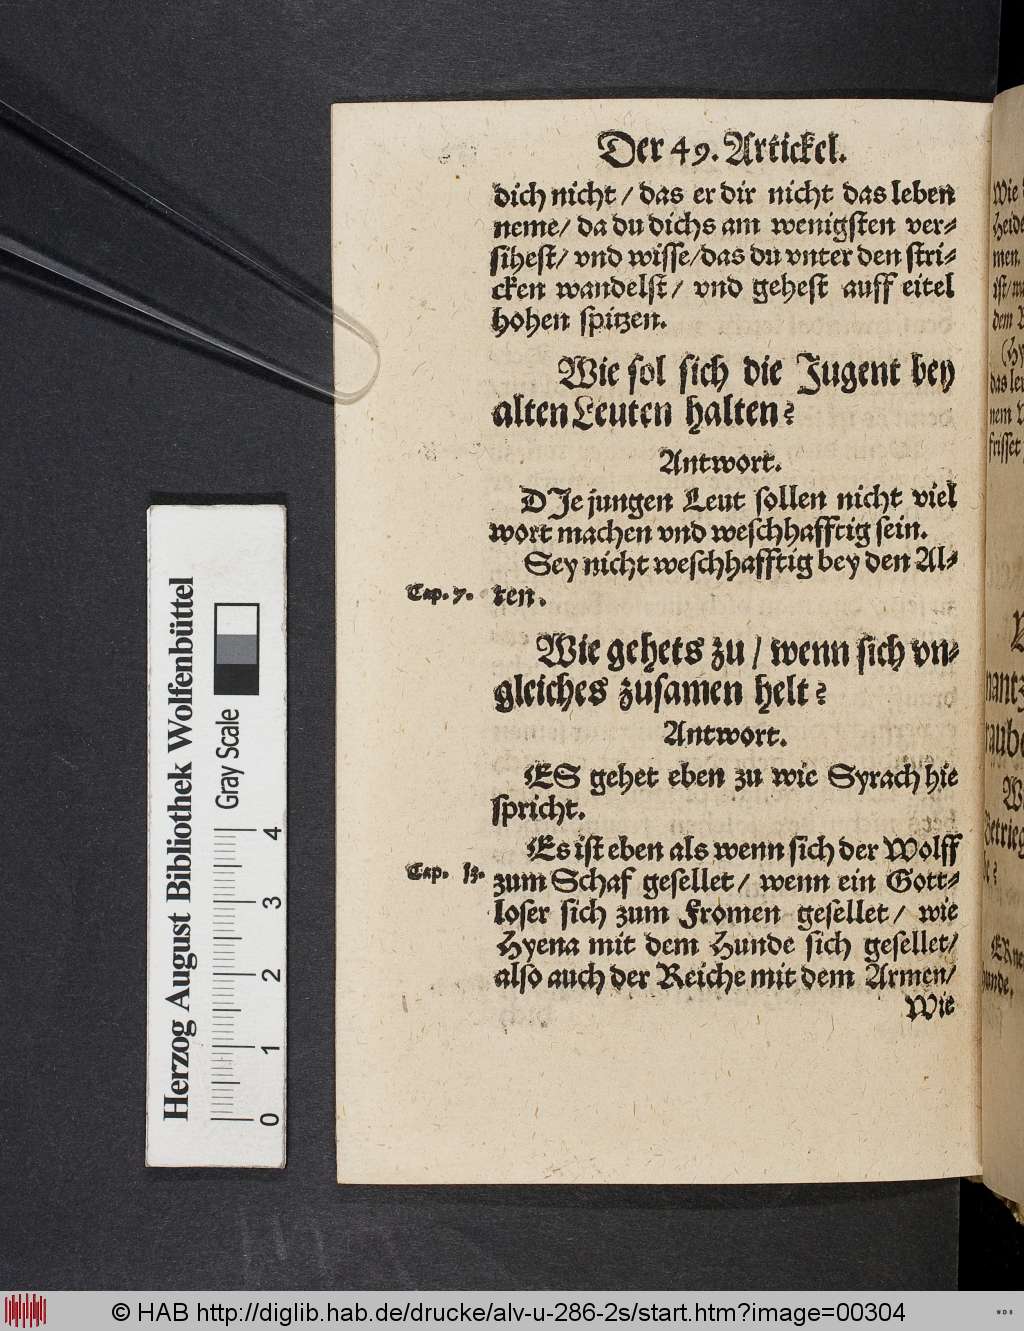 Der 49. Artickel.
dich nicht / das er dir nicht das leben
neme / da du dichs am wenigsten ver-
sihest / vnd wisse / das du vnter den stri-
cken wandelst / vnd gehest auff eitel
hohen spitzen.
Wie sol sich die Jugent bey
alten Leuten halten?
Antwort.
DJe jungen Leut sollen nicht viel
wort machen vnd weschhafftig sein.
Sey nicht weschhafftig bey den Al-
Cap. 7. ten.
Wie gehets zu / wenn sich vn-
gleiches zusamen helt?
Antwort.
ES gehet eben zu wie Syrach hie
spricht.
Es ist eben als wenn sich der Wolff
Cap. 13. zum Schaf gesellet / wenn ein Gott-
loser sich zum Fromen gesellet / wie
Hyena mit dem Hunde sich gesellet /
also auch der Reiche mit dem Armen /
Wie
Wie
men.
dem
nem
frisset
Herzog August Bibliothek Wolfenbüttel
Gray Scale
0 1 2 3 4
© HAB http://diglib.hab.de/drucke/alv-u-286-2s/start.htm?image=00304